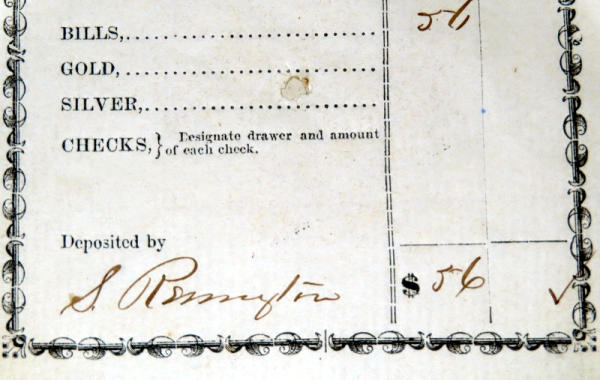 BILLS,.............................. 56
GOLD,..............................
SILVER,..............................
CHECKS,} Designate drawer and amount
of each check.
Deposited by
S. Remington $ 56 ✓